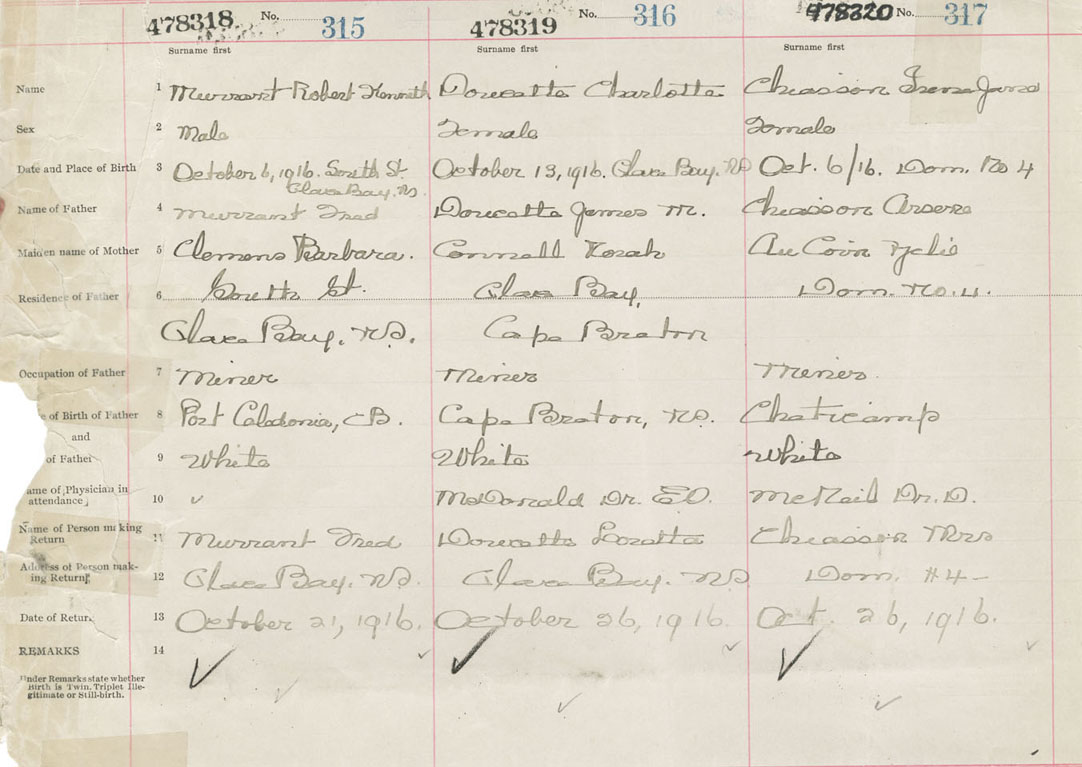 478318 No. 315 478319 No. 316 478320 No. 317
Surname first Surname first Surname first
Name 1 Murrant Robert Kenneth Doucette Charlotte Chiasson Irene Jane
Sex 2 Male Female Female
Date and Place of Birth 3 October 6, 1916. South St. October 13, 1916. Glace Bay. NS Oct. 6/16. Dom. No 4
Glace Bay, NS.
Name of Father 4 Murrant Fred Doucette James M. Chiasson Arsene
Maiden name of Mother 5 Clemens Barbara. Connell Norah AuCoin
Residence of Father 6 South St. Glace Bay, Dom. No. 4.
Glace Bay, NS. Cape Breton
Occupation of Father 7 Miner Miner Miner
e of Birth of Father 8 Port Caledonia, CB. Cape Breton, NS. Cheticamp
and
of Father 9 White White White
ame of Physician in
attendance 10 McDonald Dr. E.O. McNeil Dr. D.
Name of Person making
Return 11 Murrant Fred Doucette Loretta Chiasson Mrs
Address of Person mak-
ing Return 12 Glace Bay. NS. Glace Bay. NS Dom. #4-
Date of Return 13 October 21, 1916. October 26, 1916. Oct. 26, 1916.
REMARKS 14
Under Remarks state whether
Birth is Twin, Triplet Ille-
gitimate or Still-birth.